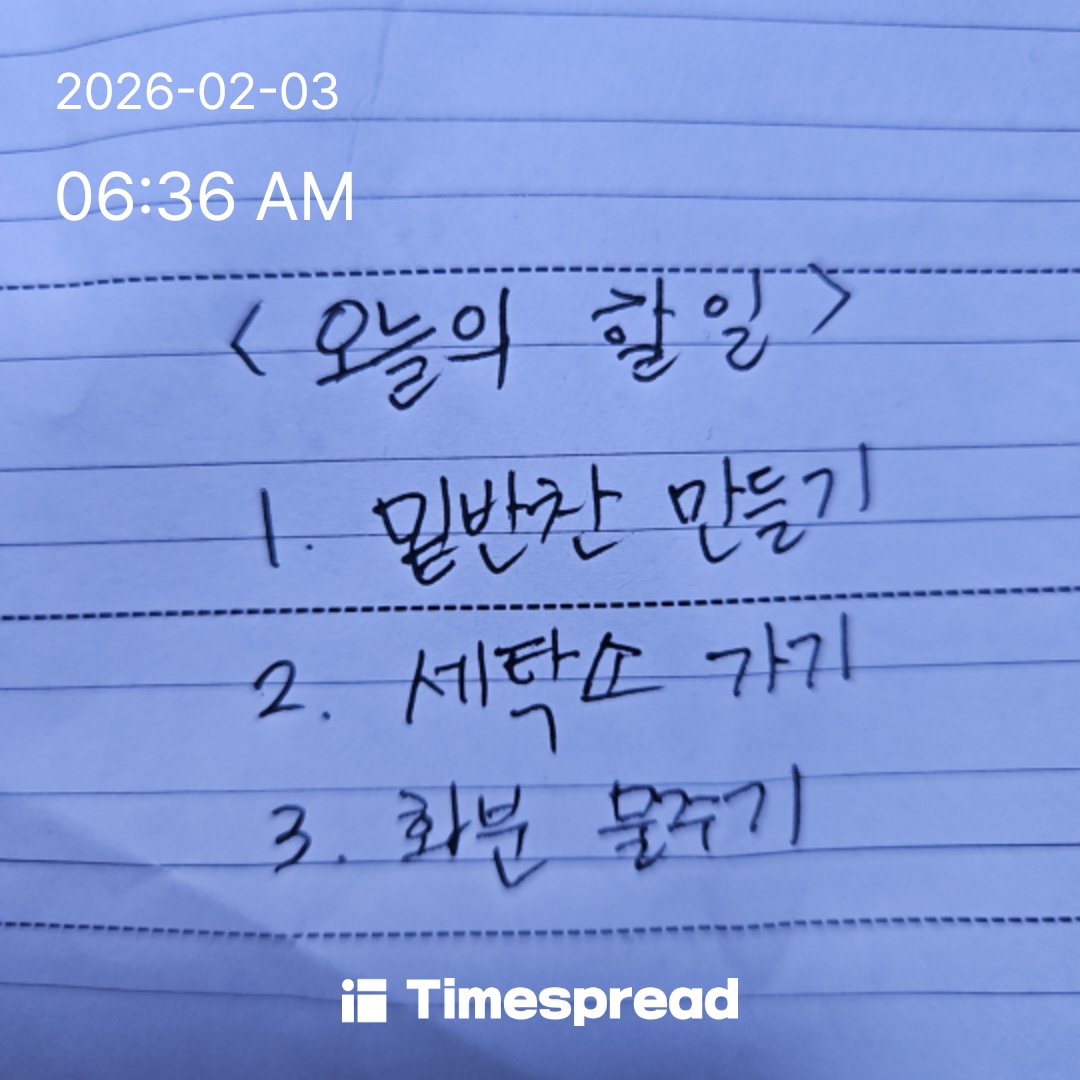 2026-02-03
06:36 AM
< 오늘의 할일 >
1. 밑반찬 만들기
2. 세탁소 가기
3. 화분 물주기
Timespread